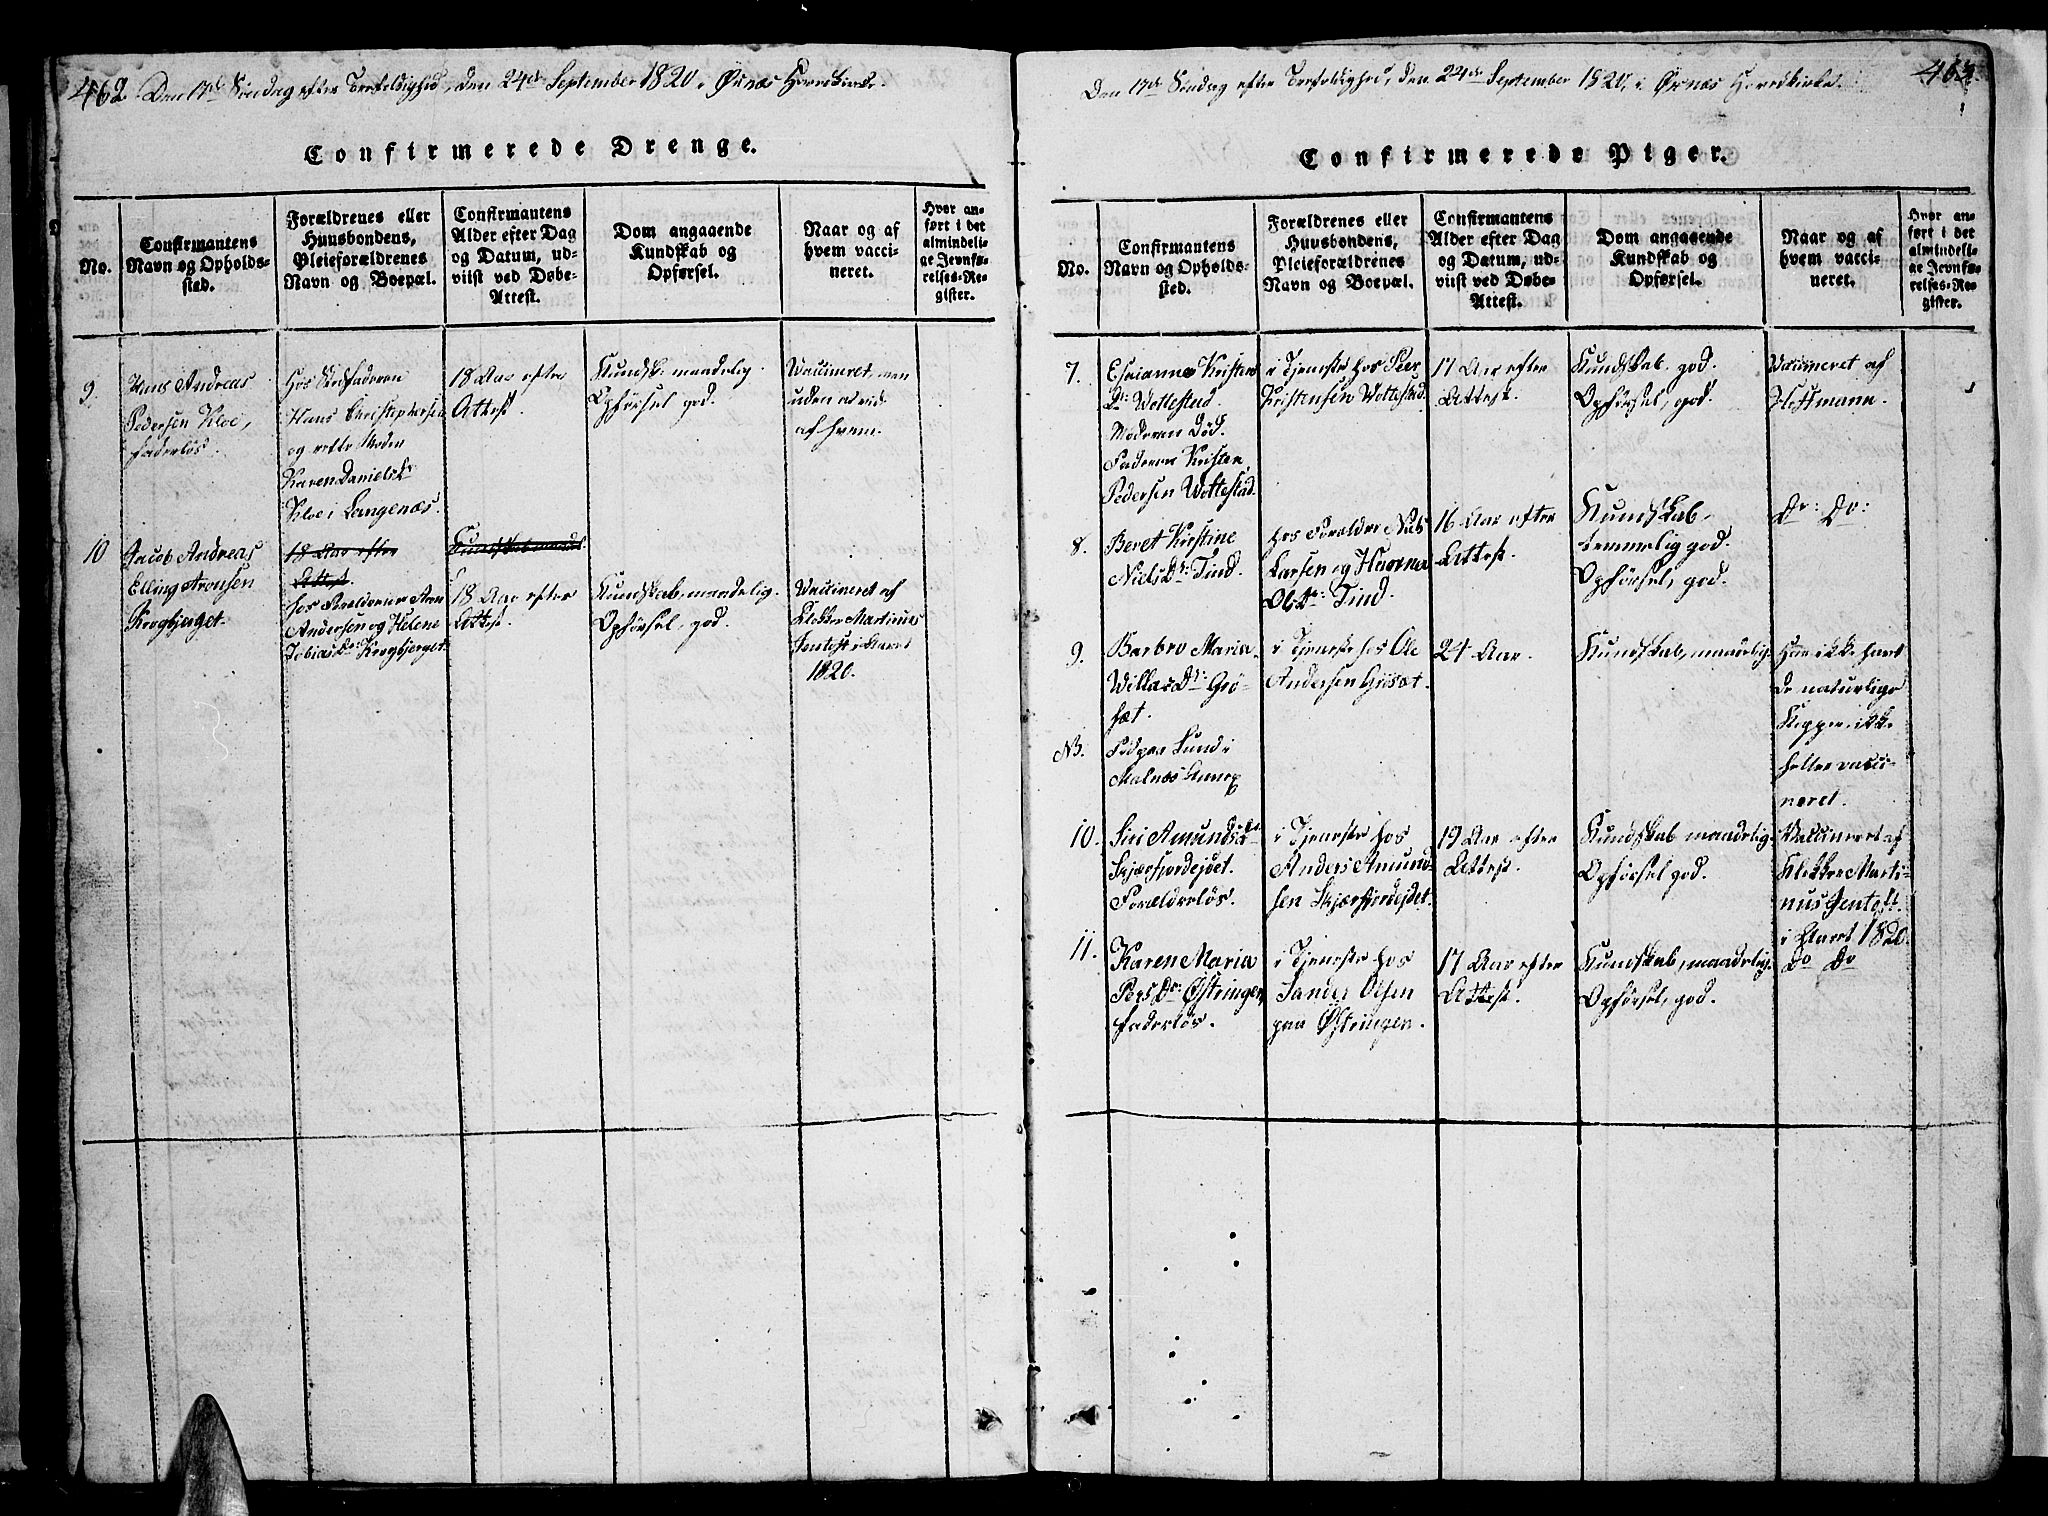 462. Den 17de Søndag efter Trefoldighed, den 24de September 1820, i Øxnæs Hovedkirke.
Confirmerede Drenge.
No.
Confirmantens
Navn og Opholds-
sted.
Forældrenes eller
Huusbondens,
Pleieforældrenes
Navn og Boepæl.
Confirmantens
Alder efter Dag
og Datum, ud-
viist ved Døbe-
Attest.
Dom angaaende
Kundskab og
Opførsel.
Naar og af
hvem vacci-
neret.
Hvor an-
ført i det
almindeli-
ge Jevnfø-
relses-Re-
gister.
9.
Hans Andreas
Pedersen Kloe,
faderløs.
Hos Stedfaderen
Hans Christophersen
og rette Moder
Karen Daniels Dr
Kloe i Langenæs.
18 Aar efter
Attest.
Kundsk: maadelig.
Opførsel god.
Vaccineret, men
uden at vide
af hvem.
10
Jacob Andreas
Elling Aronsen
Krogbjerget.
18 Aar efter
Attest
hos Forældrene Aron
Andersen og Helene
Tobias Dr Krogbjerget.
Kundskab maad.
18 Aar efter
Attest.
Kundskab, maadelig.
Opførsel, god.
Vaccineret af
Klokker Martinus
Jentoft i Aaret
1820.
Den 17de Søndag efter Trefoldighed, den 24de September 1820, i Øxnæs Hovedkirke.
463.
Confirmerede Piger.
No.
Confirmantens
Navn og Opholds-
sted.
Forældrenes eller
Huusbondens,
Pleieforældrenes
Navn og Boepæl.
Confirmantens
Alder efter Dag
og Datum, ud-
viist ved Døbe-
Attest.
Dom angaaende
Kundskab og
Opførsel.
Naar og af
hvem vacci-
neret.
Hvor an-
ført i det
almindeli-
ge Jevnfø-
relses-Re-
gister.
7.
Kristen
Dr: Wottestad.
Moderen død.
Faderen Kristen
Pedersen Wottestad.
i Tjeneste hos Peer
Kristensen Wottestad.
17 Aar efter
Attest.
Kundskab, god.
Opførsel, god.
Vaccineret af
Hoffmann.
8.
Beret Kirstine
Niels Dr: Tind.
hos Forælder Niels
Larsen og
Ols Dr: Tind.
16 Aar efter
Attest.
Kundskab,
temmelig god.
Opførsel, god.
Do: Do:
9.
Barbro Maria
Willas Dr: Grø-
sæt.
i Tjeneste hos Ole
Andersen Grøsæt.
24 Aar.
Kundskab, maadelig.
Har ikke havt
de naturlige
Kopper, ikke
heller vacci-
neret.
NB.
Født paa Lund i
Malnæs Annex
10.
Siri Amunds Dr
Skjærfjordejdet.
Forælderløs.
i Tjeneste hos
Anders Amund-
sen Skjærfjordejdet.
19 Aar efter
Attest.
Kundskab maadelig.
Opførsel god.
Vaccineret af
Klokker Marti-
nus Jentoft.
i Aaret 1820.
11.
Karen Maria
Pers Dr: Østringen,
faderløs.
i Tjeneste hos
Sander Olsen
paa Østringen.
17 Aar efter
Attest.
Kundskab, maadelig.
Opførsel, god.
Do Do